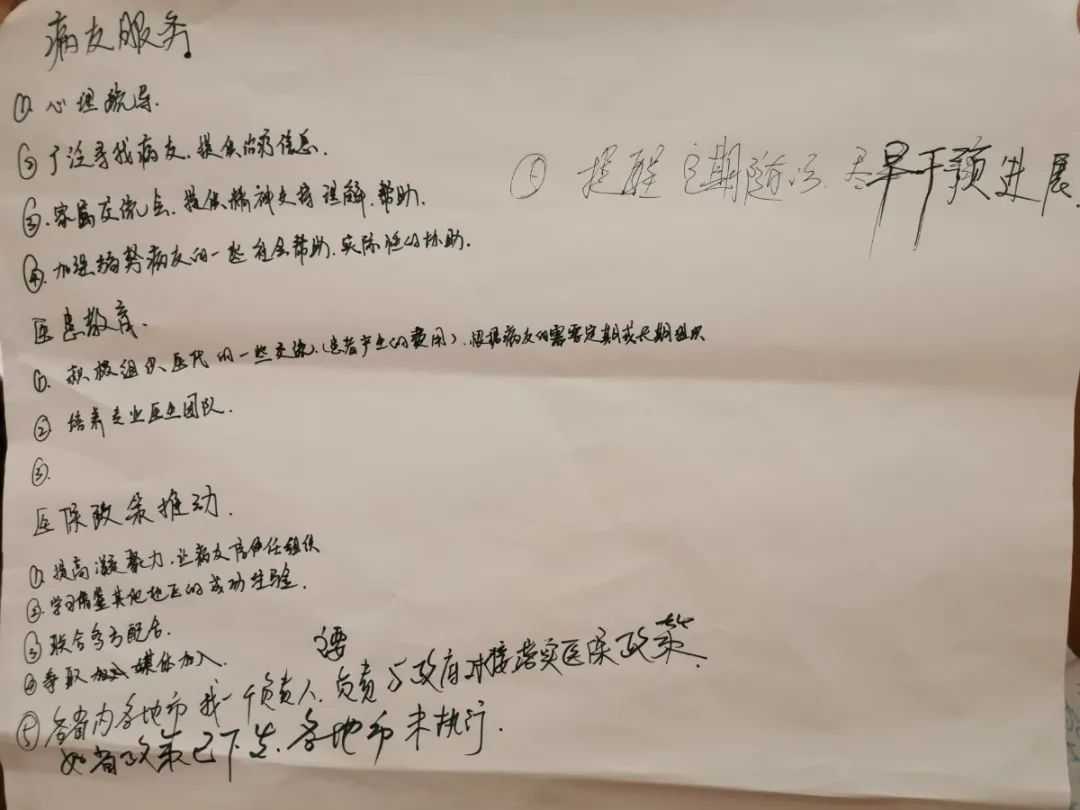 病友服务.
① 心理疏导.
② 广泛寻找病友.提供治疗信息.
③.家属交流会.提供精神支持理解.帮助.
④.加强弱势病友的一些社会帮助.实际性的协助.
⑤ 提醒定期随访.尽早干预进展.
医患教育.
①. 积极组织医代的一些交流.(患者产生的费用).根据病友的需要定期或长期组织
② 培养专业医生团队.
③.
医保政策推动.
①.提高凝聚力.让病友信任组织
②.学习借鉴其他地区的成功经验.
③ 联合多方配合.
④ 争取 媒体加入.
⑤ 各省内各地市找一个负责人.负责与政府对接落实医保政策.
如省政策已下发.各地市未执行.